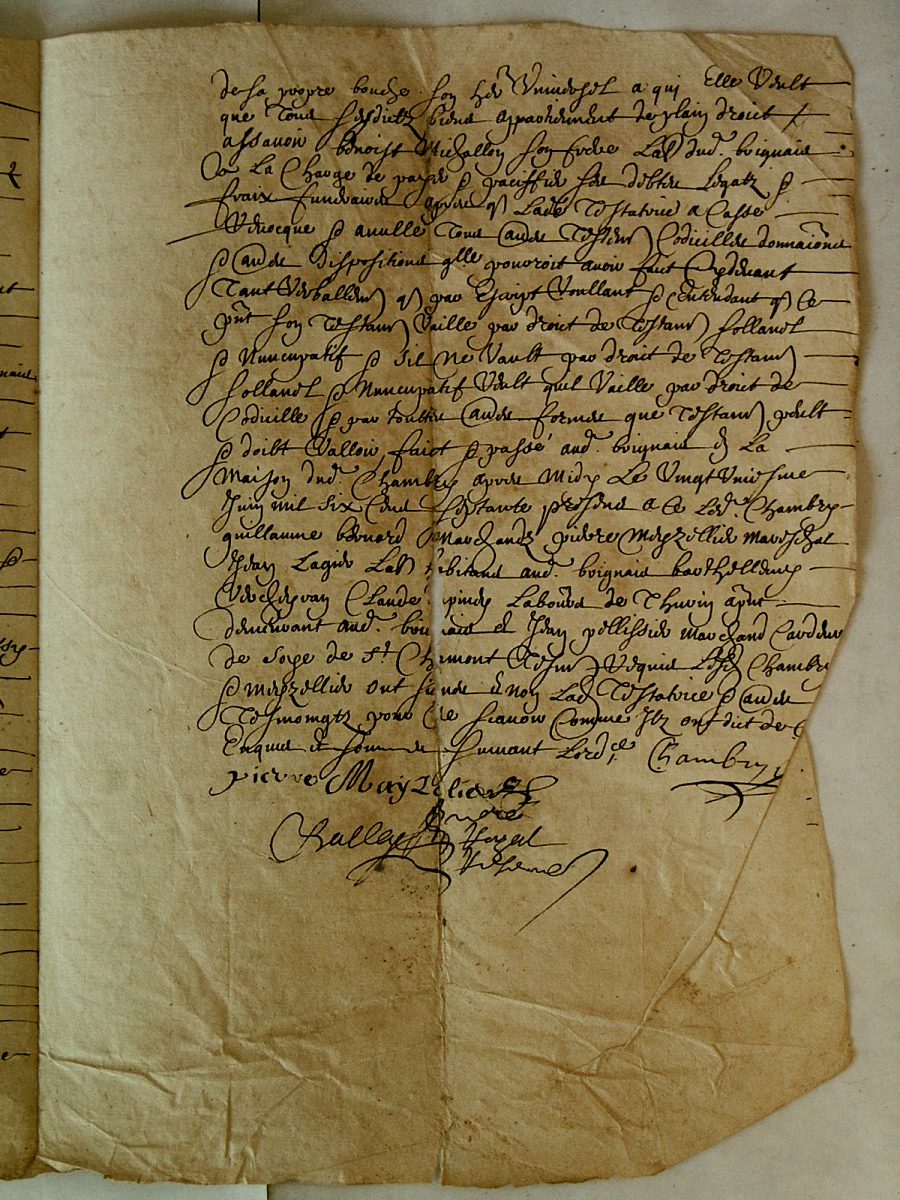 de sa propre bouche son her universel a qui Elle Veult
que Tous sesdictz biens appartiennent de plain droict
assavoir benoist Michallon son frere Lab dud. brignais
a La Charge de payer & paciffier ses debtes Legatz &
fraix funeraires apres q Lade Testatrice a Casse
Revocque & anulle Tous autres Testam Codicilles donnaions
& autres Dispositions qlle pourroit avoir faict Cydevant
Tant Verballem q par Escript Voullant & Entendant q Ce
pnt son Testam Vaille par droit de Testam sollanel
& Nuncupatif & Sil Ne Vault par droit de Testam
sollanel & Nuncupatif Veult quil Vaille par droit de
Codicille & par touttes autres formes que Testam peult
& doibt Valloir, faict & passé aud. brignais En La
Maison dud. Chambry apres Midy Le Vingt Uniesme
Juin mil six Cens septante presens a Ce Led. Chambry
guillaume benard Marchandz pierre Meyzellier Mareschal
Jean Lagier Lab bitans aud. brignais barthellemy
Claude pinay Laboureur de Thurin apnt
demeurant aud. bri nais & Jean pellissier Marchand Cardeur
de soye de St. Chamont Tesm Requis Lesd Chambry
& Meyzellier ont signe & non Lade Testatrice & autres
Tesmoingtz pour ne scavoir Comme Ilz ont dict de
Enquis et sommes suivant Lordce Chambry
pierre Mayzelier
Royal